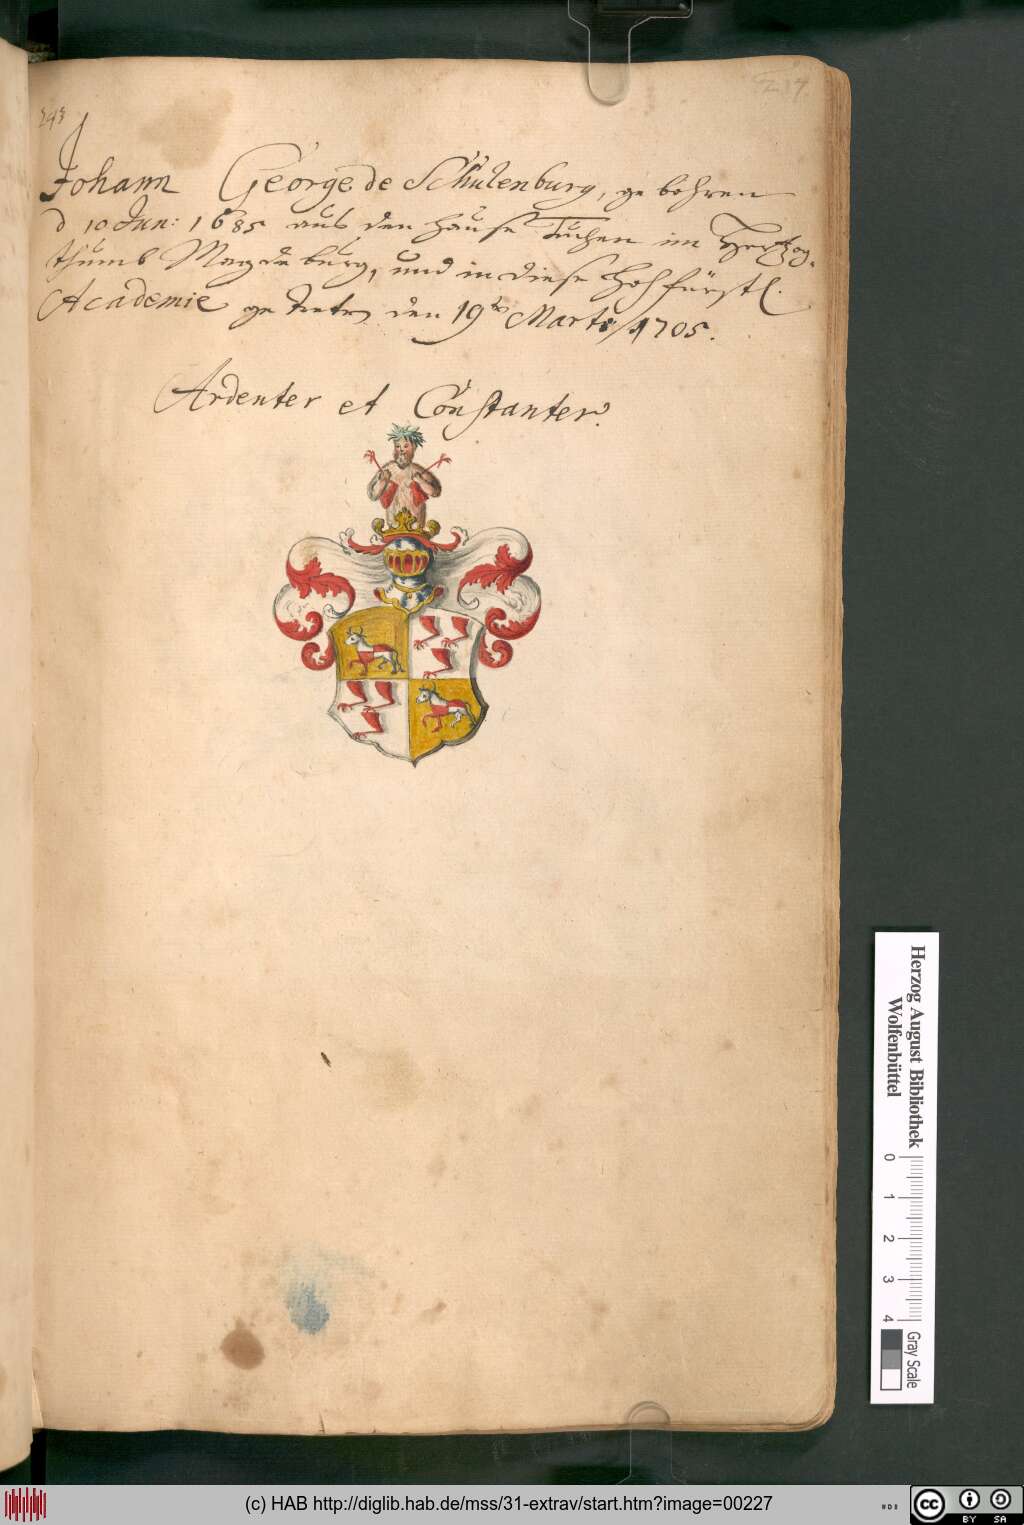 243
217
Johann George de Schulenburg, gebohren
d 10 Jun: 1685 aus den Hause Tuchen im Hertzog-
thumb Magdeburg, und in diese Hochfürstl.
Academie getreten den 19ten Marti 1705.
Ardenter et Constanter.
Herzog August Bibliothek
Wolfenbüttel
0 1 2 3 4
Gray Scale
(c) HAB http://diglib.hab.de/mss/31-extrav/start.htm?image=00227
cc BY SA